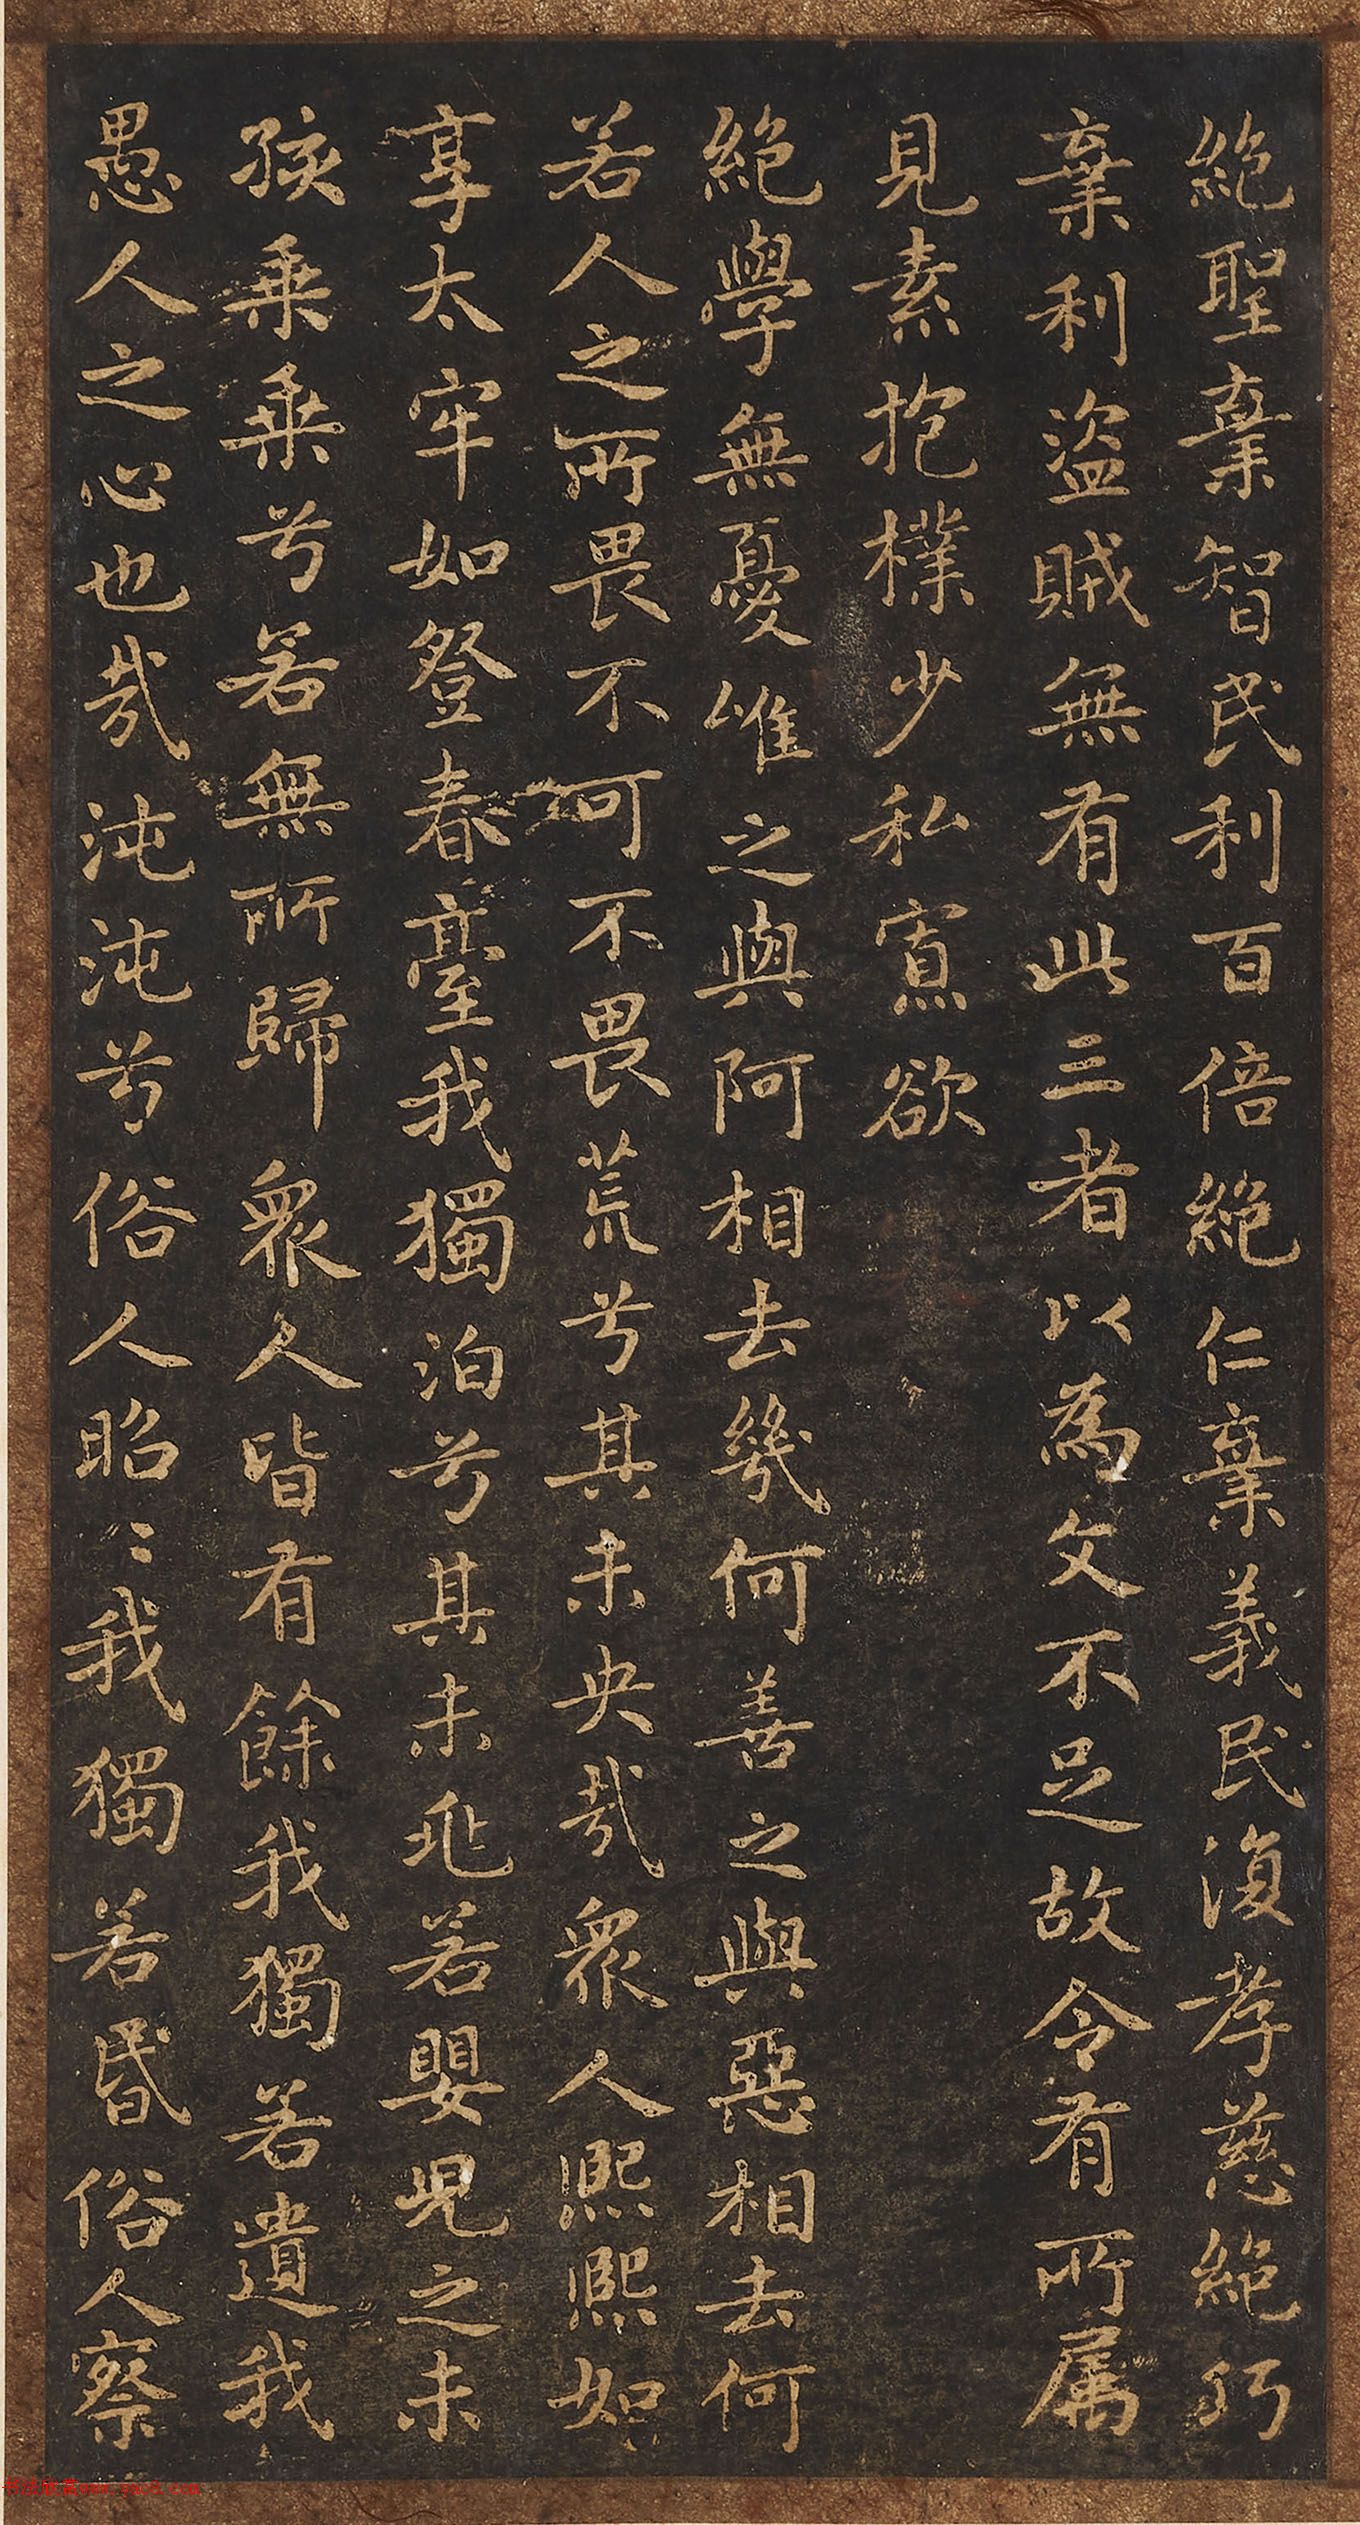 絶聖棄智民利百倍絶仁棄義民復孝慈絶巧
棄利盜賊無有此三者以為文不足故令有所属
見素抱樸少私寡欲
絶學無憂唯之與阿相去幾何善之與惡相去何
若人之所畏不可不畏荒兮其未央哉衆人熙熙如
享太牢如登春臺我獨泊兮其未兆若嬰兒之未
孩乘乘兮若無所歸衆人皆有餘我獨若遺我
愚人之心也哉沌沌兮俗人昭〻我獨若昏俗人察